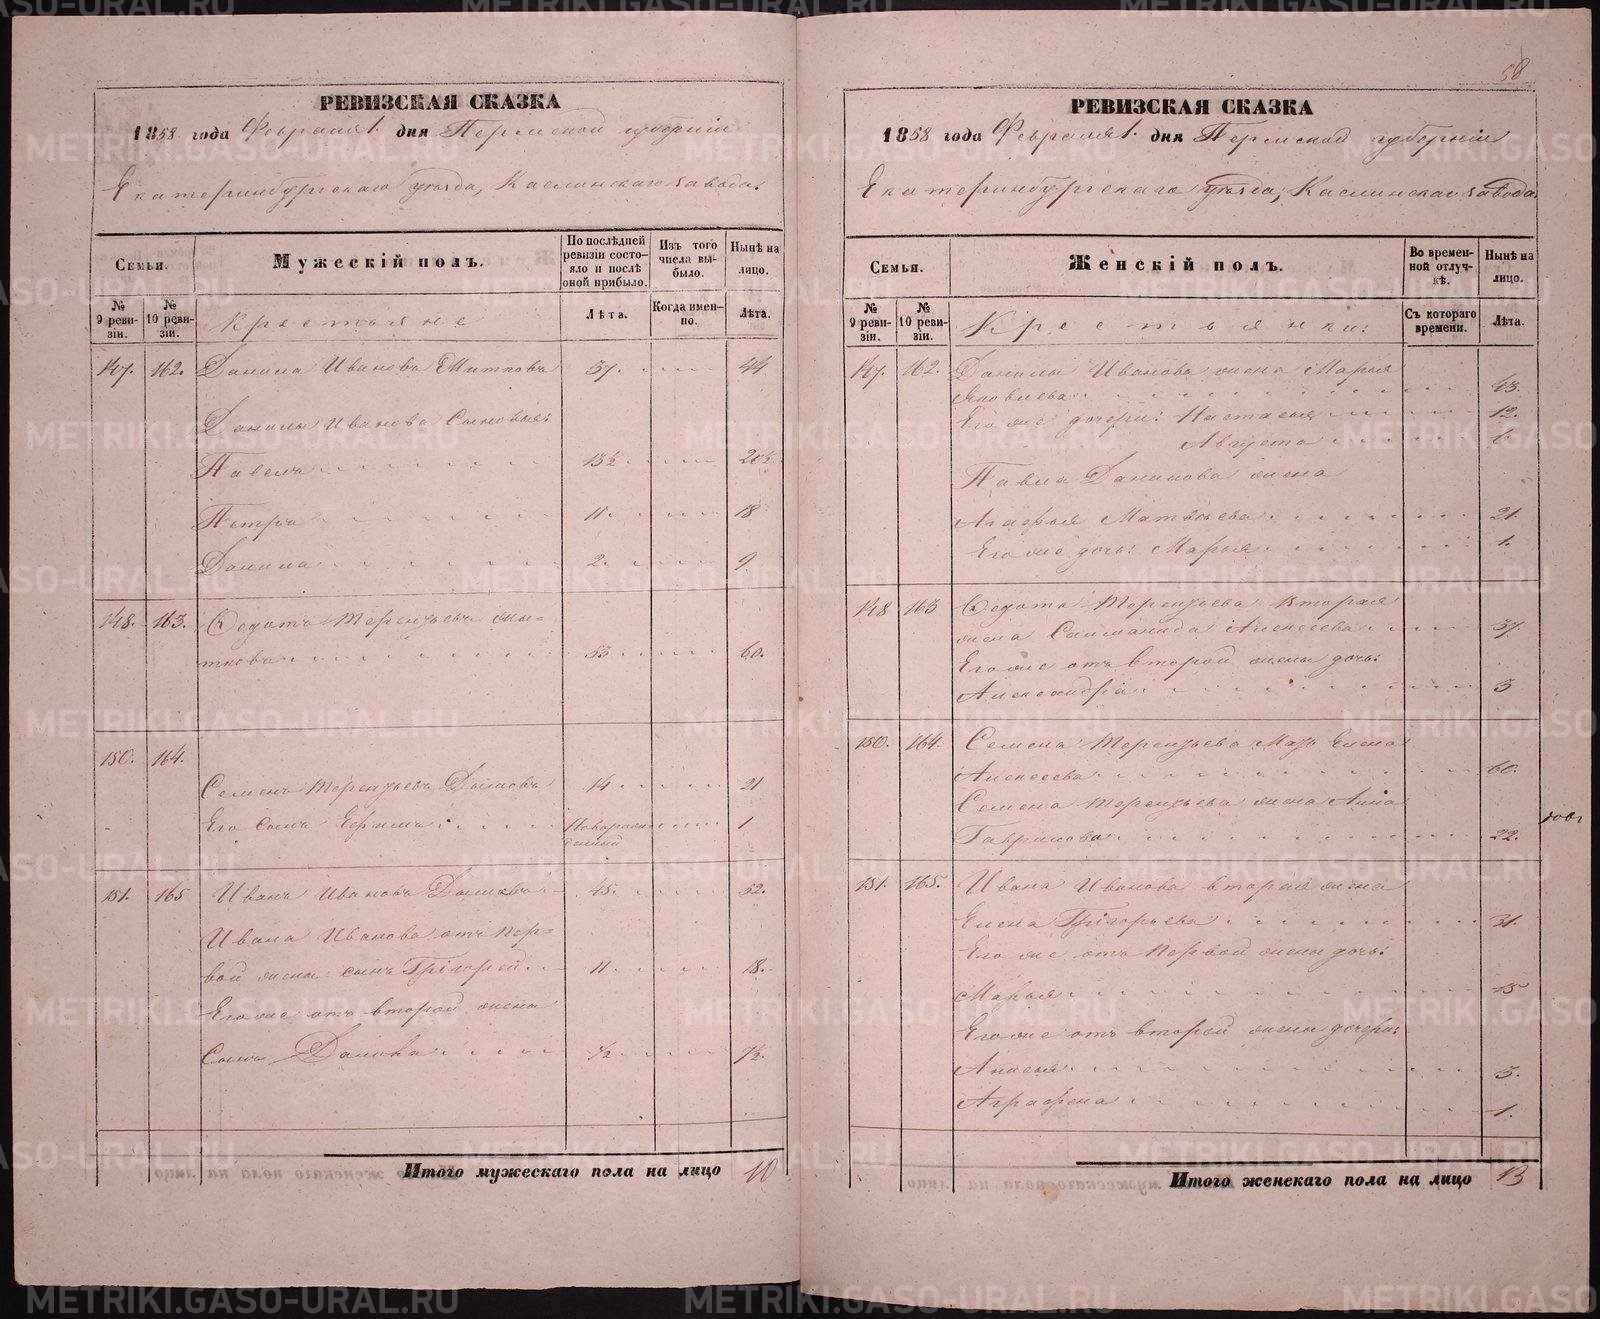 РЕВИЗСКАЯ СКАЗКА
1858 года Февраля 1. дня Пермской губернiи
Екатеринбургскаго уѣзда, Каслинскаго завода.
Семья.
Мужескiй полъ.
По послѣдней ревизiи состояло и послѣ оной прибыло.
Изъ того числа выбыло.
Нынѣ на лицо.
№ 9 ревизiи.
№ 10 ревизiи.
Крестьяне
Лѣта.
Когда именно.
Лѣта.
147. 162. Данила Ивановъ 37. 44
Данилы Иванова сыновья:
Павелъ 13½ 20½
Петръ 11. 18
Данила 2. 9
148. 163. Федотъ Терентьевъ Мы-
тновъ 53 60.
150. 164.
Семенъ Терентьевъ 14 21
Его сынъ Ефимъ Новорож-
денный 1
151. 165 Иванъ Ивановъ 45. 52.
Ивана Иванова отъ пер-
вой жены сынъ Григорей 11 18.
Его же отъ второй жены
Сынъ ½ 7½.
Итого мужескаго пола на лицо 10
58
РЕВИЗСКАЯ СКАЗКА
1858 года Февраля 1. дня Пермской губернiи
Екатеринбургскаго уѣзда, Каслинскаго завода.
Семья.
Женскiй полъ.
Во временной отлучкѣ.
Нынѣ на лицо.
№ 9 ревизiи.
№ 10 ревизiи.
Крестьянки:
Съ котораго времени.
Лѣта.
147. 162. Данилы Иванова жена Марья
Яковлева 43.
Его же дочери: Настасья 12.
Августа 6.
Павла Данилова жена
Агафья Матвѣева 21.
Его же дочь: Марья 1.
148 163 Федота Терентьева вторая
жена Саломанида Алексеева 37.
Его же отъ второй жены дочь:
Александра 3
150. 164. Семена Терентьева мать Елена
Алексеева 60.
Семена Терентьева жена Анна
Гаврилова 22.
151. 165. Ивана Иванова вторая жена
Елена Григорьева 31.
Его же отъ первой жены дочь:
Марья 15
Его же отъ второй жены дочери:
Анисья 3.
Аграфена 1.
Итого женскаго пола на лицо 13
METRIKI.GASO-URAL.RU